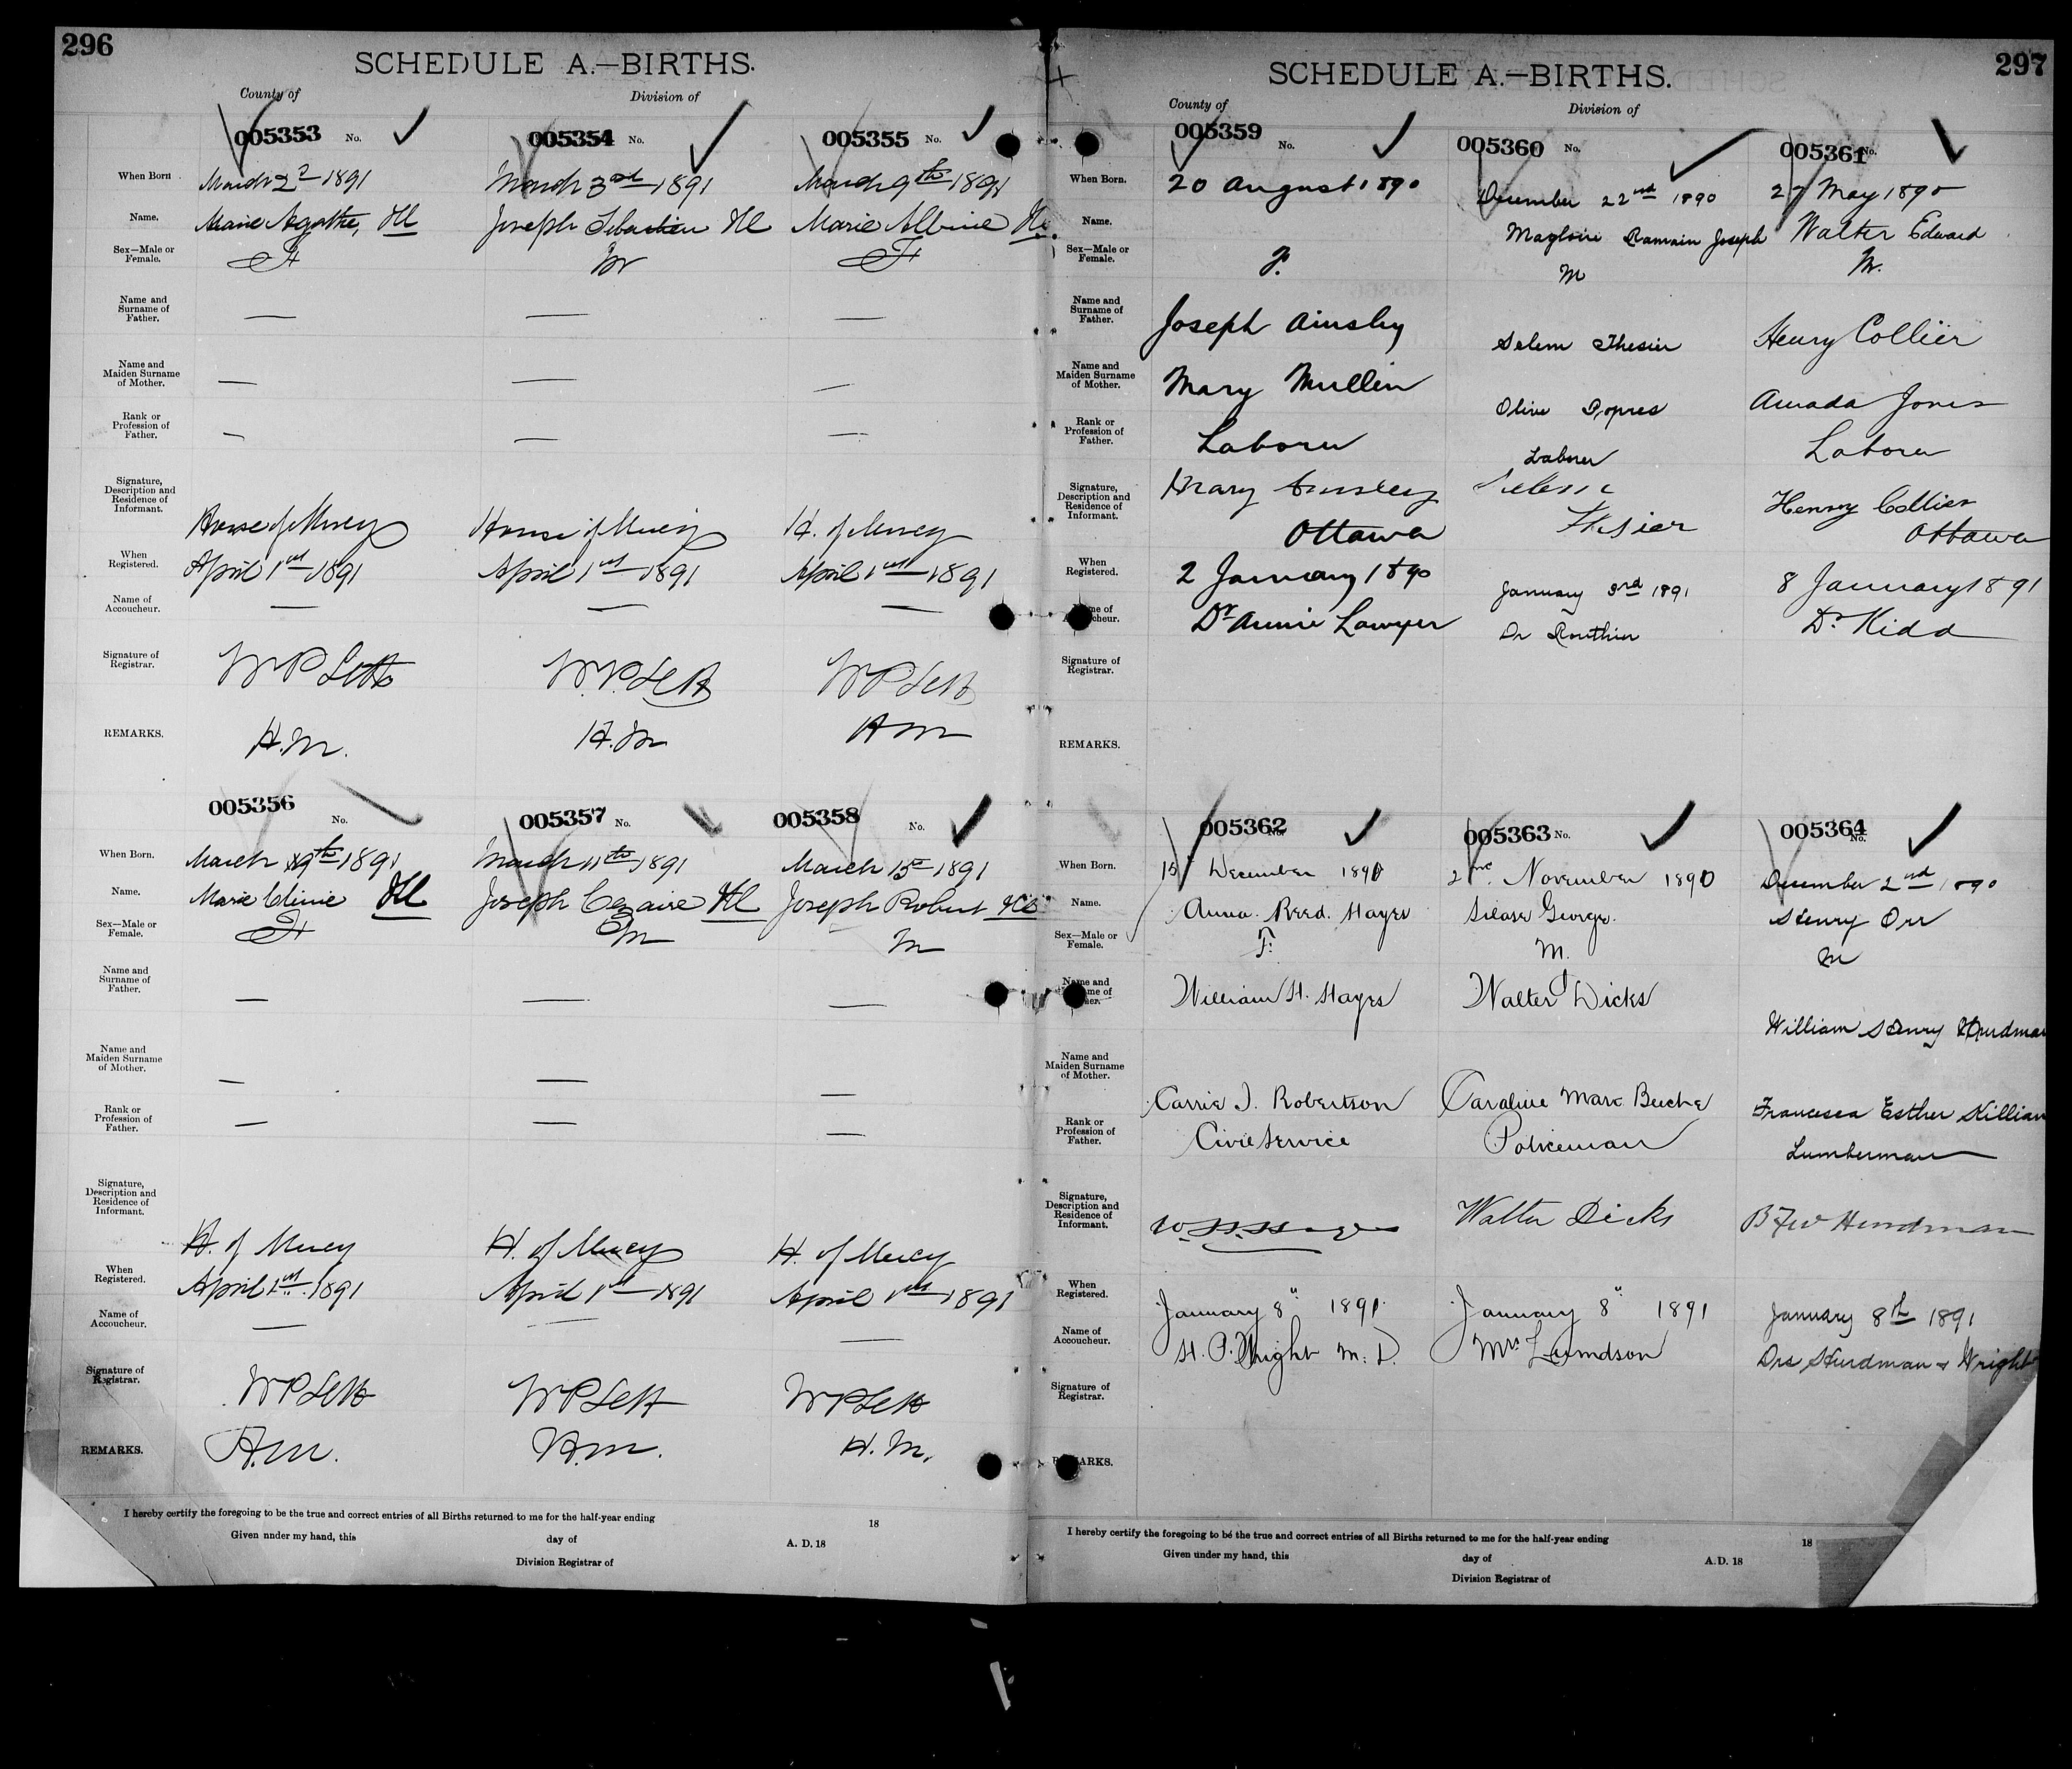 296
SCHEDULE A.—BIRTHS.
County of Division of
005353 No. 005354 No. 005355 No.
When Born March 2 1891 March 3 1891 March 9th 1891
Name. Marie Agathe, Ill Joseph Sebastien Ill Marie Albine Ill
Sex—Male or Female. F M F
Name and Surname of Father. — — —
Name and Maiden Surname of Mother. — — —
Rank or Profession of Father. — — —
Signature, Description and Residence of Informant. House of Mercy House of Mercy H. of Mercy
When Registered. April 1st 1891 April 1st 1891 April 1st 1891
Name of Accoucheur. — — —
Signature of Registrar. W P Lett W. P. Lett W P Lett
REMARKS. H. M. H. M H M
005356 No. 005357 No. 005358 No.
When Born. March 9th 1891 March 11th 1891 March 15 1891
Name. Marie Ill Joseph Cezaire Ill Joseph Robert Ill
Sex—Male or Female. F M M
Name and Surname of Father. — — —
Name and Maiden Surname of Mother. — — —
Rank or Profession of Father. — — —
Signature, Description and Residence of Informant. H. of Mercy H. of Mercy H. of Mercy
When Registered. April 1st 1891 April 1st 1891 April 1st 1891
Name of Accoucheur. — — —
Signature of Registrar. W P Lett W P Lett W P Lett
REMARKS. H. M. H. M. H. M.
I hereby certify the foregoing to be the true and correct entries of all Births returned to me for the half-year ending 18
Given under my hand, this day of A. D. 18
Division Registrar of
297
SCHEDULE A.—BIRTHS.
County of Division of
005359 No. 005360 No. 005361 No.
When Born. 20 August 1890 December 22nd 1890 27 May 1890
Name. Magloire Romain Joseph Walter Edward
Sex—Male or Female. F. M M.
Name and Surname of Father. Joseph Ainsley Salem Thesier Henry Collier
Name and Maiden Surname of Mother. Mary Mullin Olive Amada Jones
Rank or Profession of Father. Laborer Laborer Laborer
Signature, Description and Residence of Informant. Mary Ainsley Ottawa Thesier Henry Collier Ottawa
When Registered. 2 January 1890 January 3rd 1891 8 January 1891
Name of Accoucheur. Dr Annie Lawyer Dr Routhier Dr Kidd
Signature of Registrar.
REMARKS.
005362 No. 005363 No. 005364 No.
When Born. 15 December 1890 2 November 1890 December 2nd 1890
Name. Anna Reed Hayes George. Henry Orr
Sex—Male or Female. F. M. M
Name and Surname of Father. William H. Hayes Walter Dicks William Henry Hurdman
Name and Maiden Surname of Mother. Carrie J. Robertson Caroline Francesca Esther Killian
Rank or Profession of Father. Civil Service Policeman Lumberman
Signature, Description and Residence of Informant. Walter Dicks Hurdman
When Registered. January 8" 1891 January 8" 1891 January 8th 1891
Name of Accoucheur. H. P. Wright M. D. Mrs Lumdson Drs Hurdman & Wright
Signature of Registrar.
REMARKS.
I hereby certify the foregoing to be the true and correct entries of all Births returned to me for the half-year ending 18
Given under my hand, this day of A.D. 18
Division Registrar of